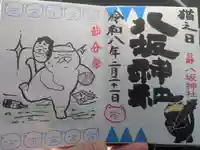 猫之日
八坂神社
八坂神社
令和八年二月二十二日
節分祭